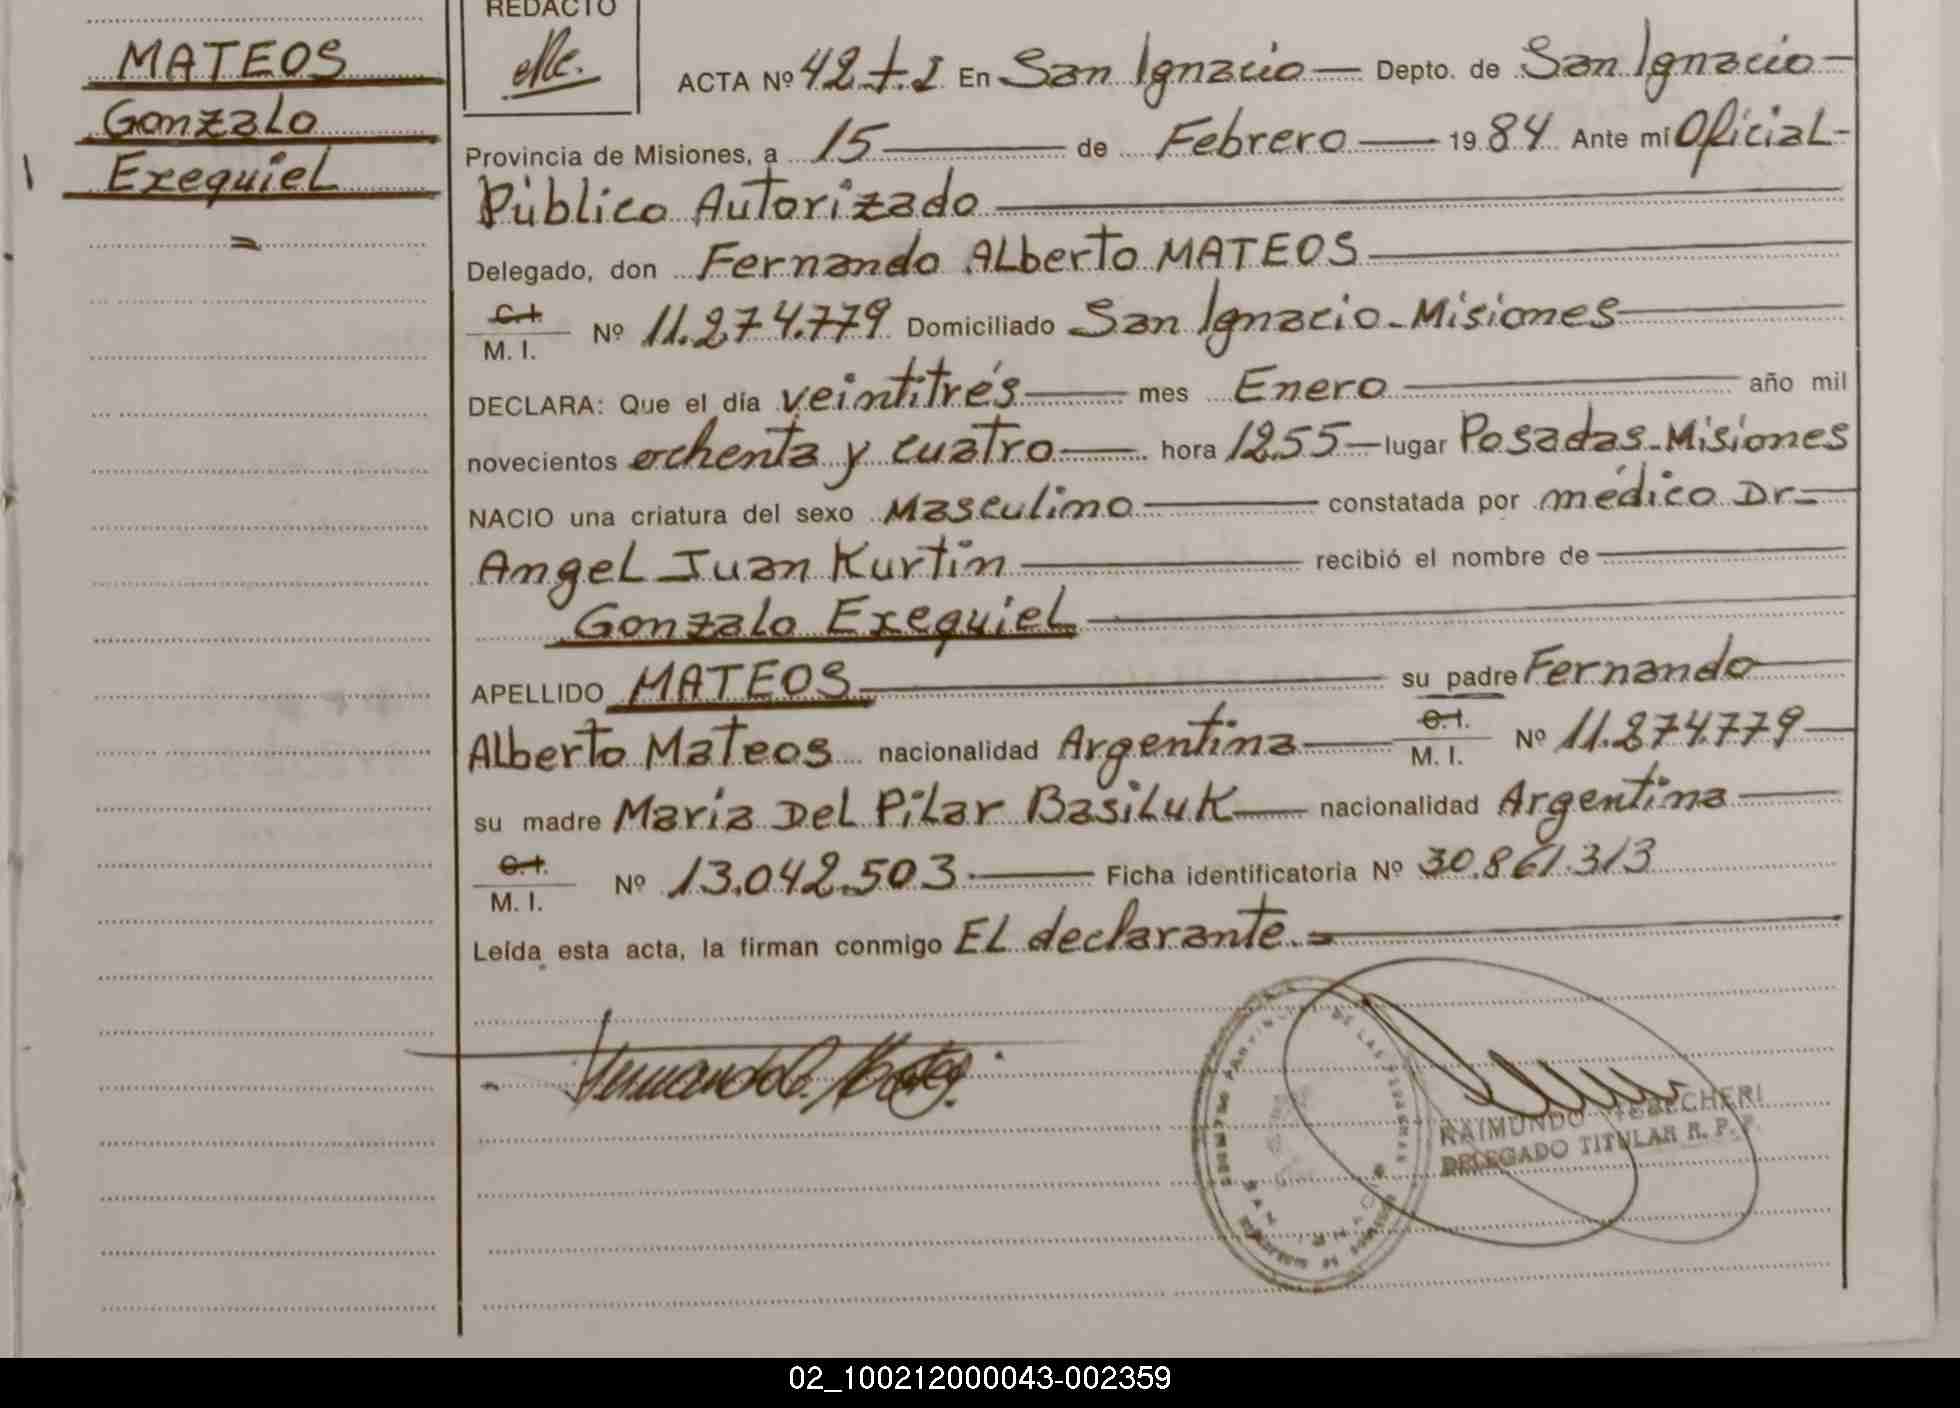 REDACTO
MATEOS
Gonzalo
Exequiel
=
ACTA Nº 42 t.I En San Ignacio — Depto. de San Ignacio —
Provincia de Misiones, a 15 — de Febrero — 1984 Ante mí Oficial —
Público Autorizado —
Delegado, don Fernando Alberto MATEOS —
C.I.
M. I. Nº 11.274.779 Domiciliado San Ignacio - Misiones —
DECLARA: Que el día veintitrés — mes Enero — año mil
novecientos ochenta y cuatro — hora 12.55 — lugar Posadas - Misiones
NACIO una criatura del sexo Masculino — constatada por médico Dr —
Angel Juan Kurtin — recibió el nombre de —
Gonzalo Exequiel —
APELLIDO MATEOS — su padre Fernando —
Alberto Mateos nacionalidad Argentina — C.I. M. I. Nº 11.274.779 —
su madre Maria Del Pilar Basiluk — nacionalidad Argentina —
C.I.
M. I. Nº 13.042.503 — Ficha identificatoria Nº 30.861.313
Leída esta acta, la firman conmigo El declarante. = —
RAIMUNDO
DELEGADO TITULAR R. P. P.
02_100212000043-002359